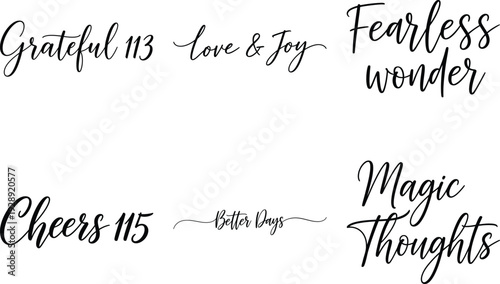 Grateful 113
Love & Joy
Fearless
wonder
Cheers 115
Better Days
Magic
Thoughts